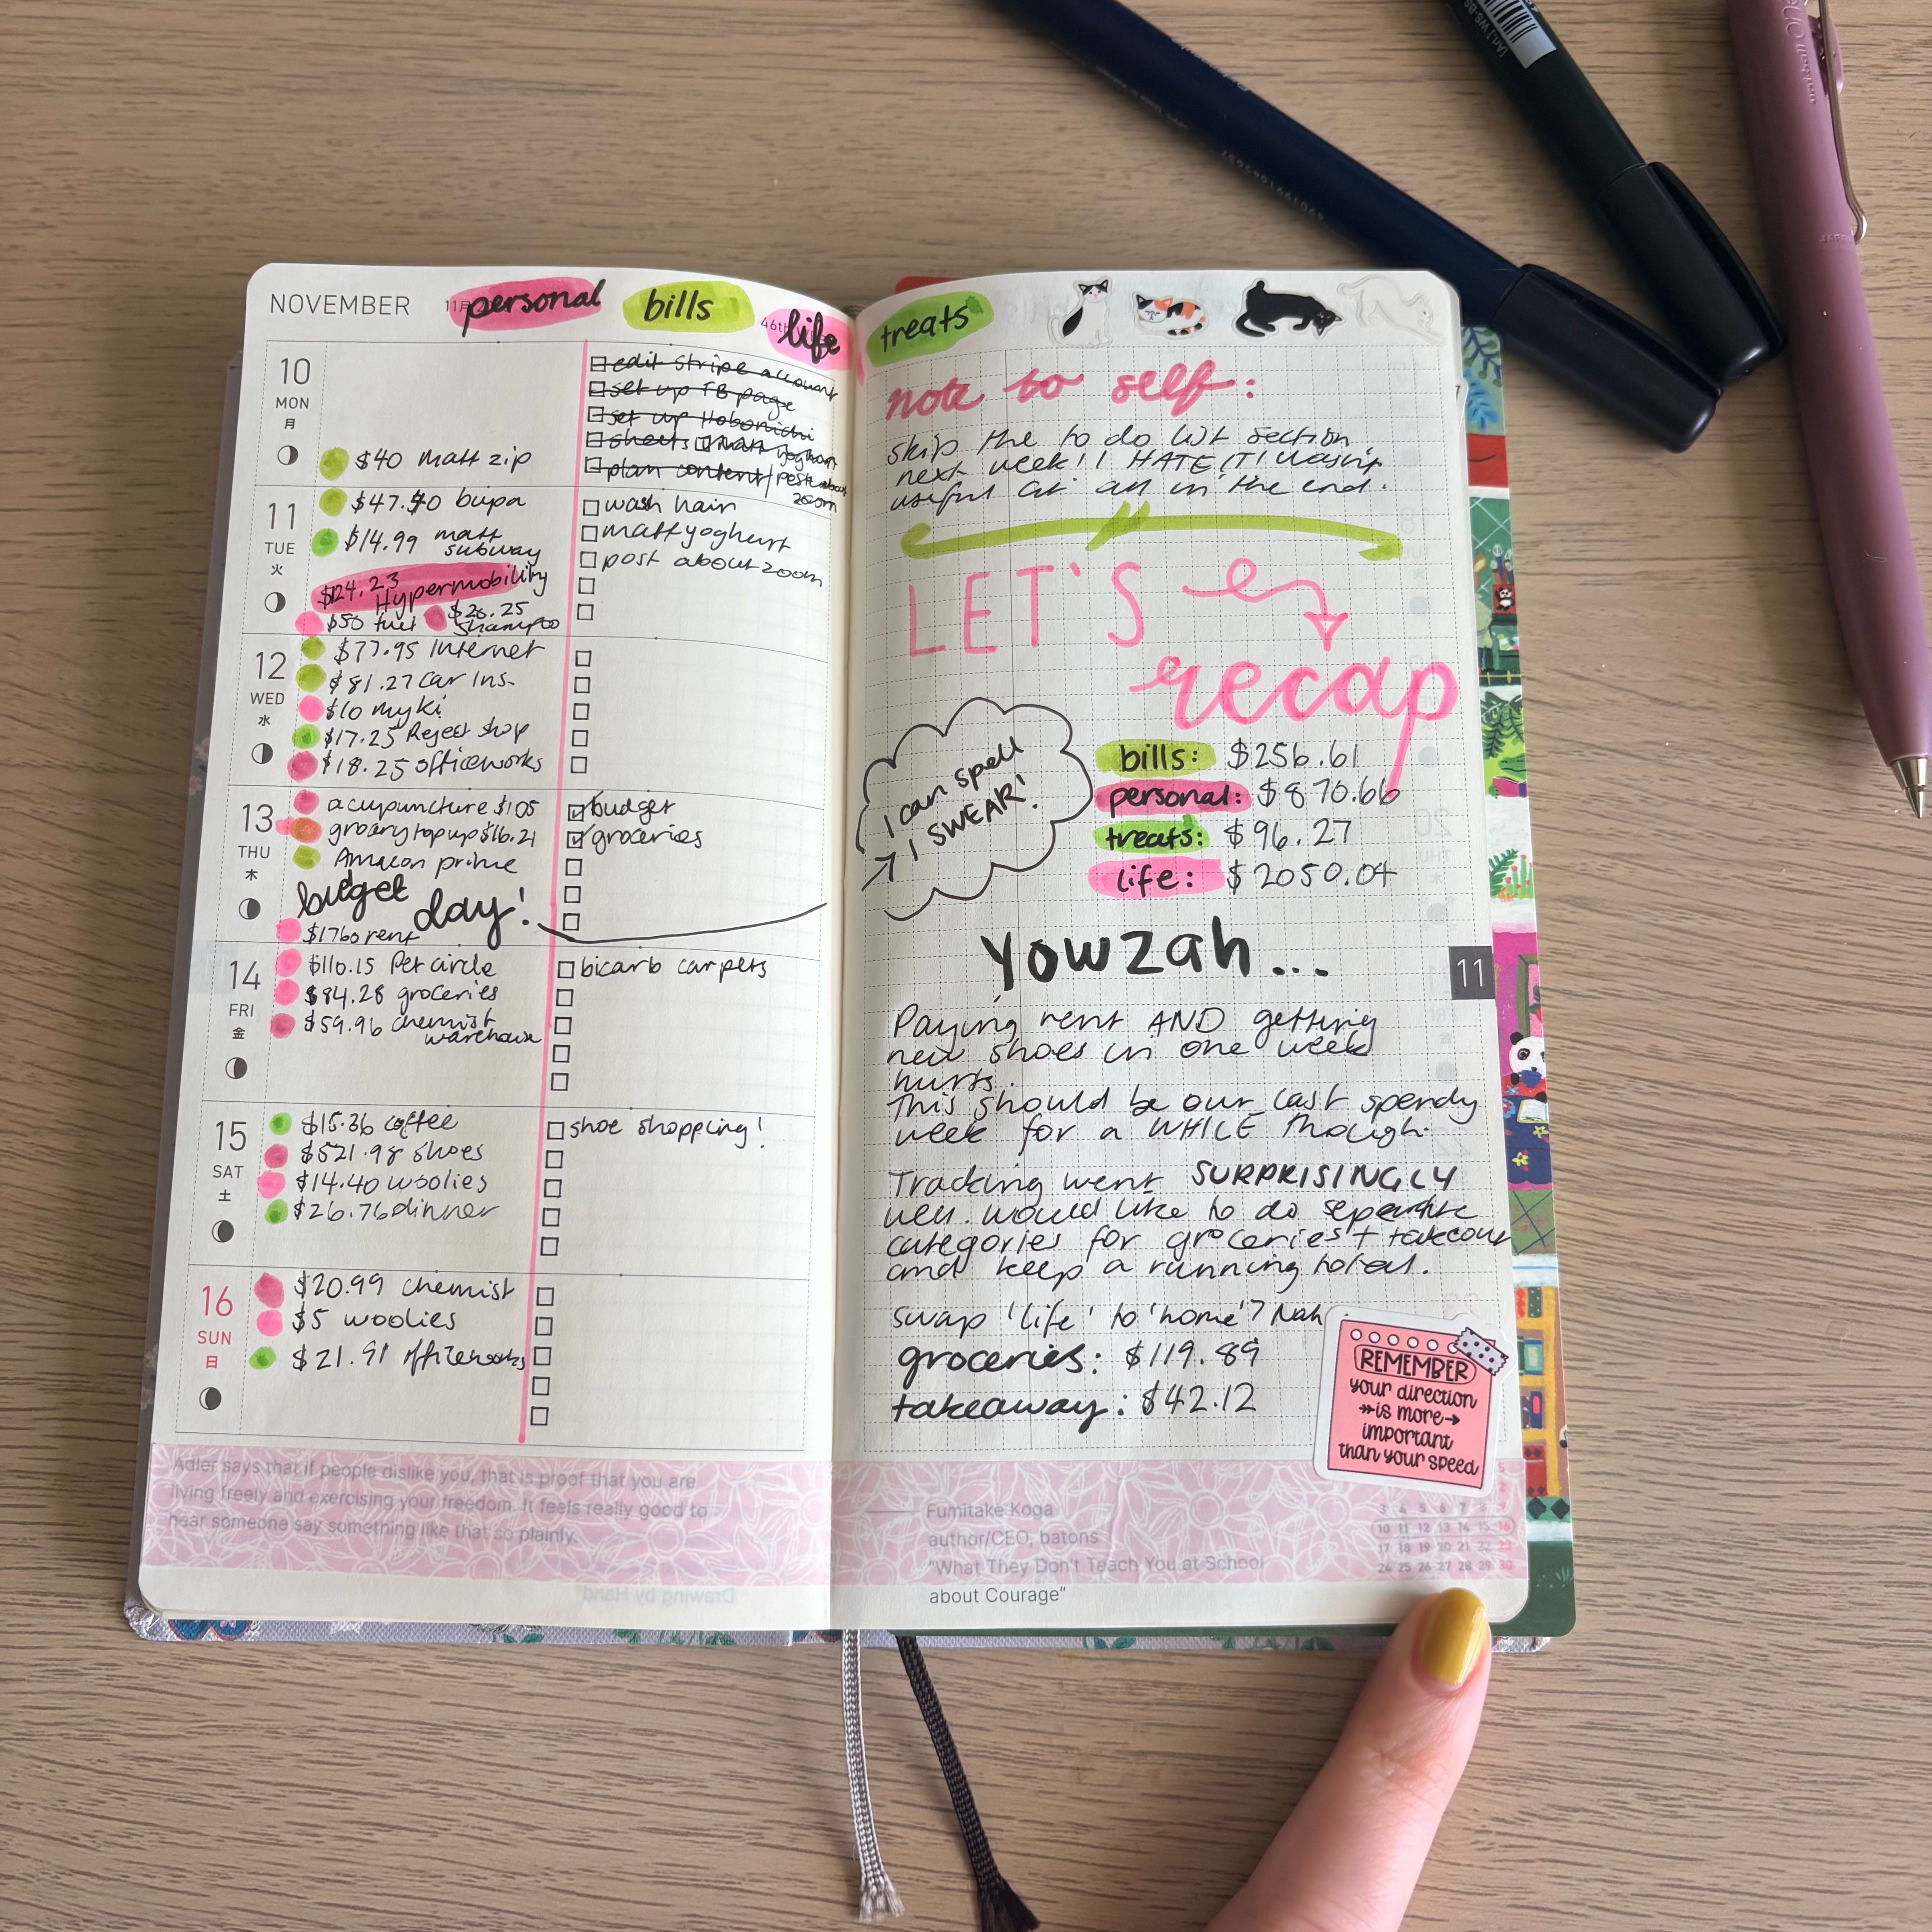 NOVEMBER
personal
bills
life
treats
10
MON
月
$40 matt zip
edit stripe account
set up FB page
set up Hobonichi
sheets
plan content
11
TUE
火
$47.40 bupa
$14.99 matt
subway
$124.23
Hypermobility
$50 fuel
$26.25
shampoo
wash hair
matt yoghurt
post about zoom
12
WED
水
$77.95 Internet
$81.27 car ins.
$10 myki
$17.25 Reject shop
$18.25 officeworks
13
THU
木
acupuncture $105
grocery top up $16.21
Amazon prime
budget
day!
$1760 rent
budget
groceries
14
FRI
金
$110.15 Pet circle
$84.28 groceries
$59.96 chemist
warehouse
bicarb carpets
15
SAT
土
$15.36 coffee
$521.98 shoes
$14.40 woolies
$26.76 dinner
shoe shopping!
16
SUN
日
$20.99 chemist
$5 woolies
$21.91 officeworks
Adler says that if people dislike you, that is proof that you are
living freely and exercising your freedom. It feels really good to
hear someone say something like that so plainly.
note to self:
skip the to do list section
next week! I HATE IT! wasn't
useful at all in the end.
LET'S
recap
I can spell
I SWEAR!
bills: $256.61
personal: $870.66
treats: $96.27
life: $2050.04
Yowzah...
11
Paying rent AND getting
new shoes in one week
hurts.
This should be our last spendy
week for a WHILE though.
Tracking went SURPRISINGLY
well. would like to do seperate
categories for groceries + takeout
and keep a running total.
swap 'life' to 'home'? Nah
groceries: $119.89
takeaway: $42.12
REMEMBER
your direction
is more
important
than your speed
Fumitake Koga
author/CEO, batons
"What They Don't Teach You at School
about Courage"
3 4 5 6 7 8 9
10 11 12 13 14 15 16
17 18 19 20 21 22 23
24 25 26 27 28 29 30